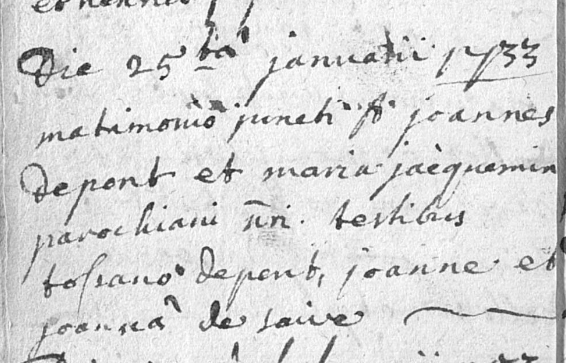 Die 25ta januarii 1733
matimonio juncti st joannes
depont et maria jacquemin
parochiani nri. testibus
depont, joanne et
joanna de saive